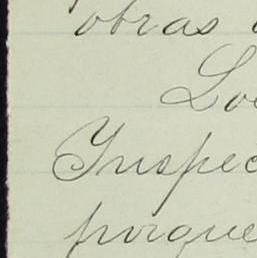 obras
Lo
Inspec
porque